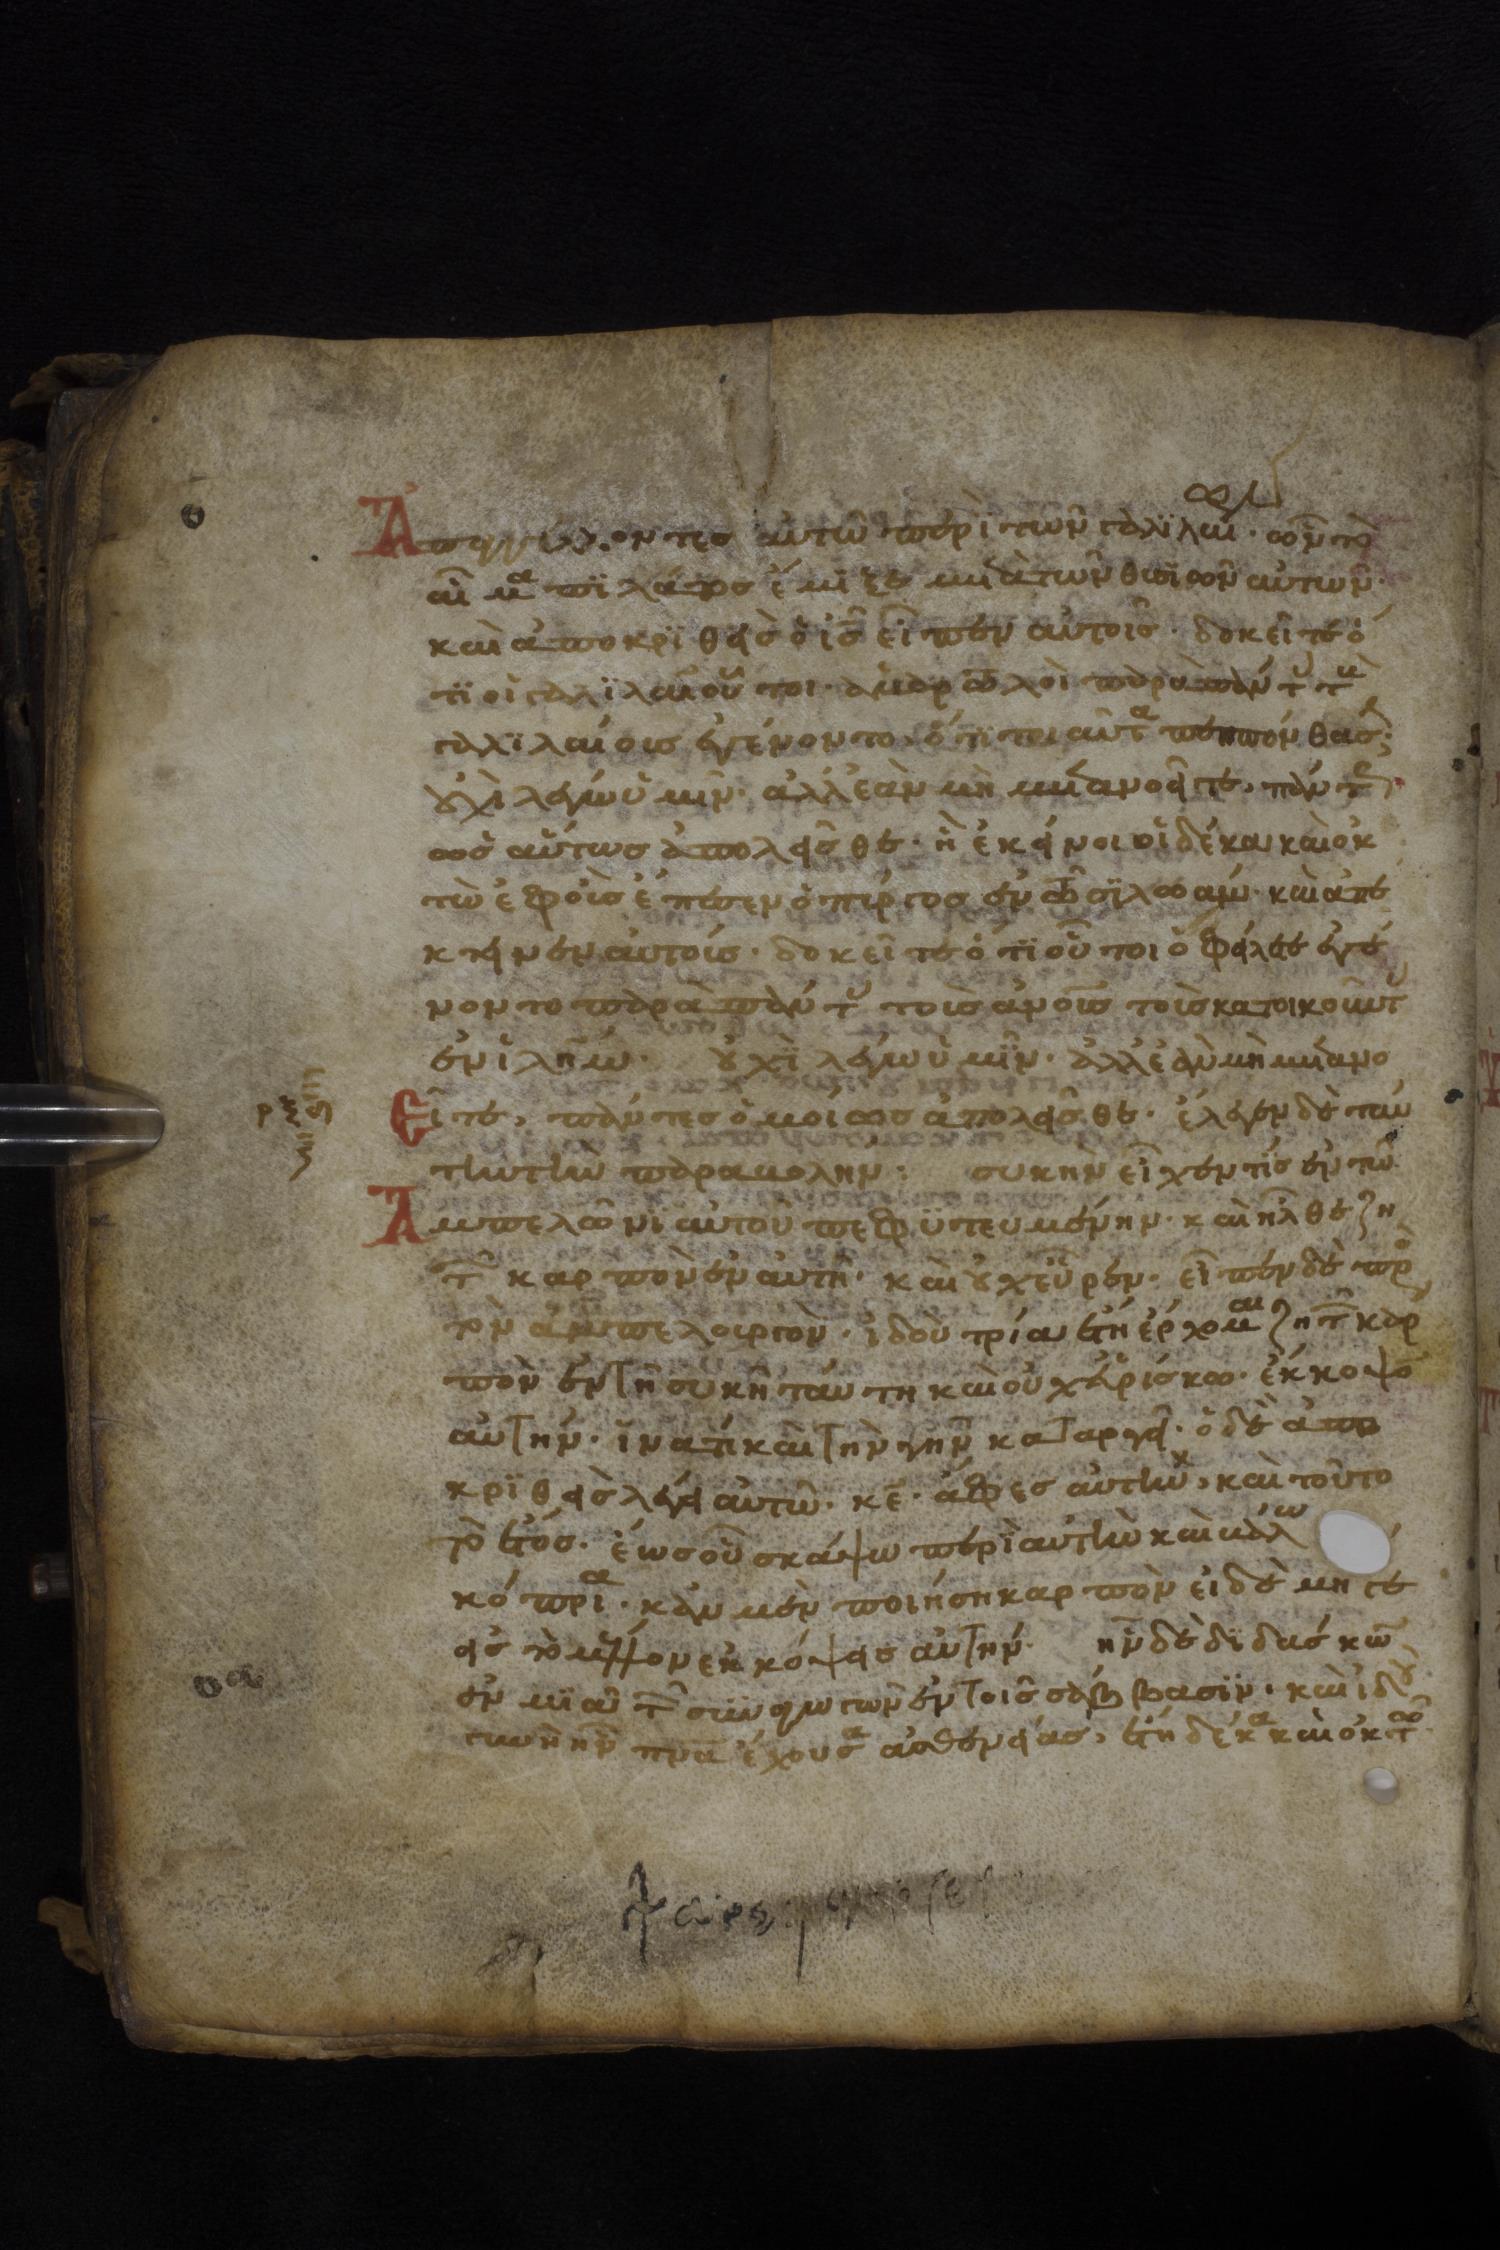 Ἀπαγγέλλοντες αὐτῶ περὶ τῶν γαλϊλαί· ὧν τὸ
αἷμα πϊλάτος ἔμϊξε μετὰ τῶν θυσϊῶν αὐτῶν·
καὶ ἀποκρϊθεὶς ὁ ις εἶπεν αὐτοῖς· δοκεῖτε ὅ
τϊ οἱ γαλϊλαῖοι οὗτοι· ἁμαρτωλοὶ παρὰ πάντ τ
γαλϊλαίοις ἐγένοντο, ὅτϊ τοιαῦτα πεπόνθασ;
οὐχὶ λέγω ὑμῖν· ἀλλ' ἐὰν μὴ μετανοεῖτε, πάντ
ὡσαύτως ἀπολεῖσθε· ἢ ἐκεῖνοι οἱ δέκα καὶ ὀκ
τὼ ἐφ οἷς ἔπεσεν ὁ πύργος ἐν τῶ σϊλωάμ· καὶ ἀπέ
κτεινεν αὐτοίς· δοκεῖτε ὅτϊ οὗτοι ὀφειλέτε ἐγέ
νοντο παρὰ πάντ τοὶς ἀνοις τοὶς κατοικοῦντ
ἐν ϊλημ· οὐχϊ λέγω ὑμῖν· ἀλλ' ἐὰν μὴ μετανο
εῖτε, πάντες ὁμοίως ἀπολεῖσθε· ἔλεγεν δὲ ταύ
την τὴν παραβολήν· συκῆν εἶχέν τίς ἐν τῶ
Ἀμπελῶνϊ αὐτοῦ πεφϋτευμένην· καὶ ἦλθε ζη
τ καρπὸν ἐν αὐτῆ· καὶ οὐχ εὗρεν· εἶπεν δὲ πρ
τὸν ἀμπελουργὸν· ἰδοὺ τρία ἔτη ἔρχομαι ζητ καρ
πὸν ἐν τῆ συκῆ ταύτη καὶ οὐχ εὑρίσκω· ἔκκοψο
αὐτήν· ἵνατί καὶ τὴν γῆν καταργεῖ· ὁ δὲ ἀπο
κρϊθεὶς λέγει αὐτῶ· κε· ἄφες αὐτὴν, καὶ τοῦτο
τὸ ἔτος· ἕως οὗ σκάψω περὶ αὐτὴν καὶ βάλω
κόπρια· κἂν μὲν ποιήση καρπὸν εἰ δὲ μή γε
εἰς τὸ μέλλον ἐκκόψεις αὐτήν· ἦν δὲ δϊδάσκων
ἐν μϊᾶ τ συναγωγων ἐν τοῖς σάββασϊν· καὶ ἰδοὺ
γυνὴ ἦν πνα ἔχουσα ἀσθενείας, ἔτη δέκα καὶ ὀκτω